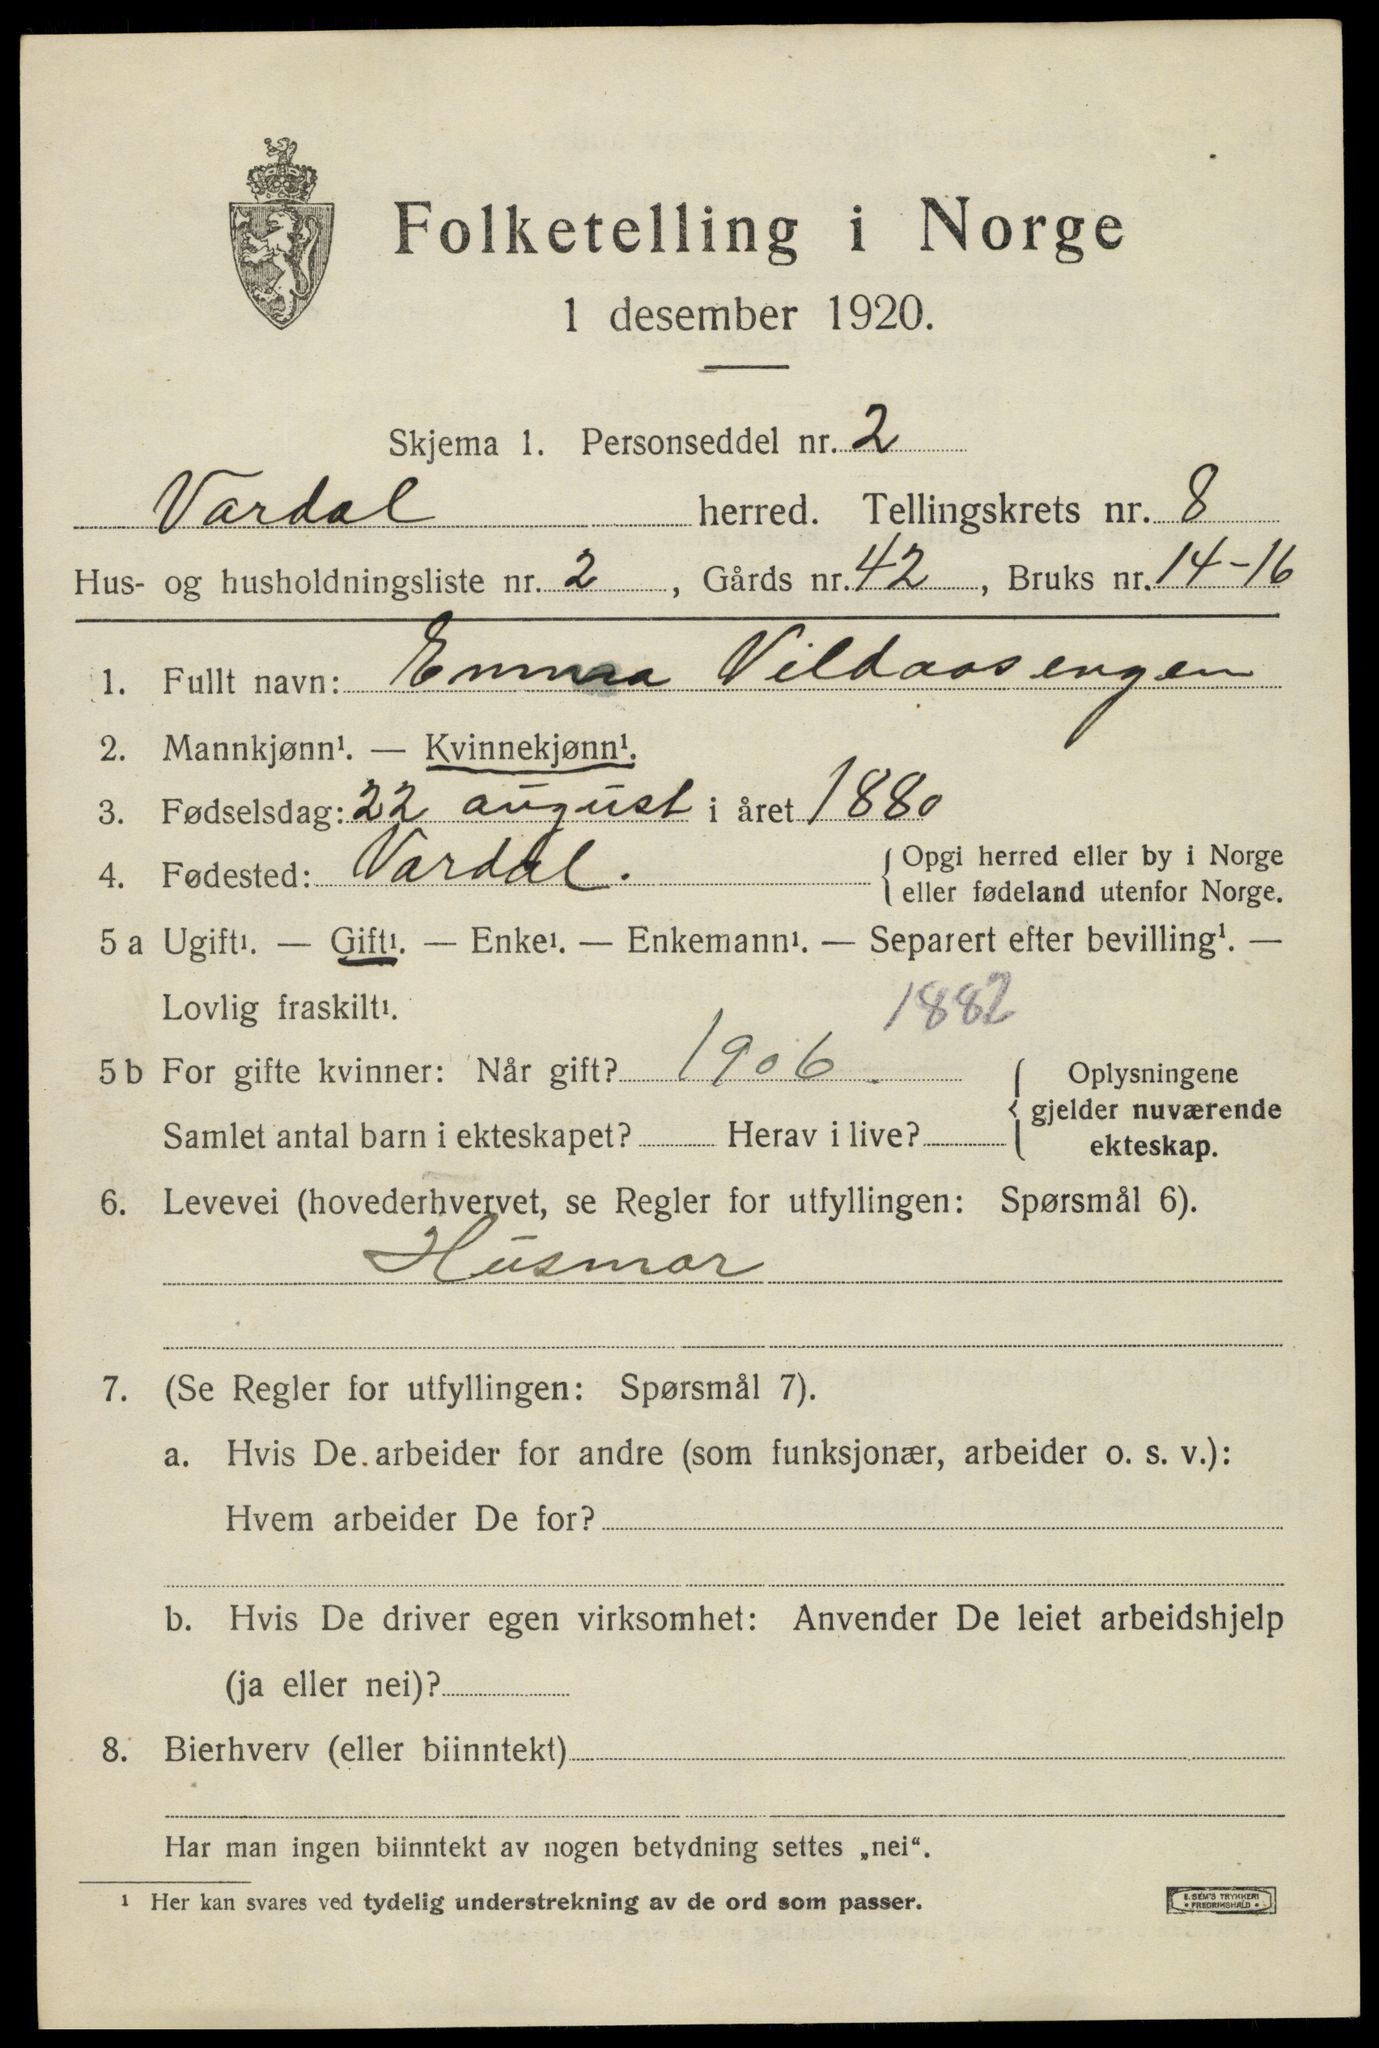 Folketelling i Norge
1 desember 1920.
Skjema 1. Personseddel nr. 2
Vardal herred. Tellingskrets nr. 8
Hus- og husholdningsliste nr. 2, Gårds nr. 42, Bruks nr. 14-16
1. Fullt navn: Emma Vildaasengen
2. Mannkjønn¹. — Kvinnekjønn¹.
3. Fødselsdag: 22 august i året 1880
4. Fødested: Vardal. { Opgi herred eller by i Norge
eller fødeland utenfor Norge.
5 a Ugift¹. — Gift¹. — Enke¹. — Enkemann¹. — Separert efter bevilling¹. —
Lovlig fraskilt¹.
1882
5 b For gifte kvinner: Når gift? 1906. { Oplysningene
gjelder nuværende
Samlet antal barn i ekteskapet? Herav i live? ekteskap.
6. Levevei (hovederhvervet, se Regler for utfyllingen: Spørsmål 6).
Husmor
7. (Se Regler for utfyllingen: Spørsmål 7).
a. Hvis De arbeider for andre (som funksjonær, arbeider o. s. v.):
Hvem arbeider De for?
b. Hvis De driver egen virksomhet: Anvender De leiet arbeidshjelp
(ja eller nei)?
8. Bierhverv (eller biinntekt)
Har man ingen biinntekt av nogen betydning settes „nei“.
¹ Her kan svares ved tydelig understrekning av de ord som passer.
E. SEM'S TRYKKERI
• FREDRIKSHALD •